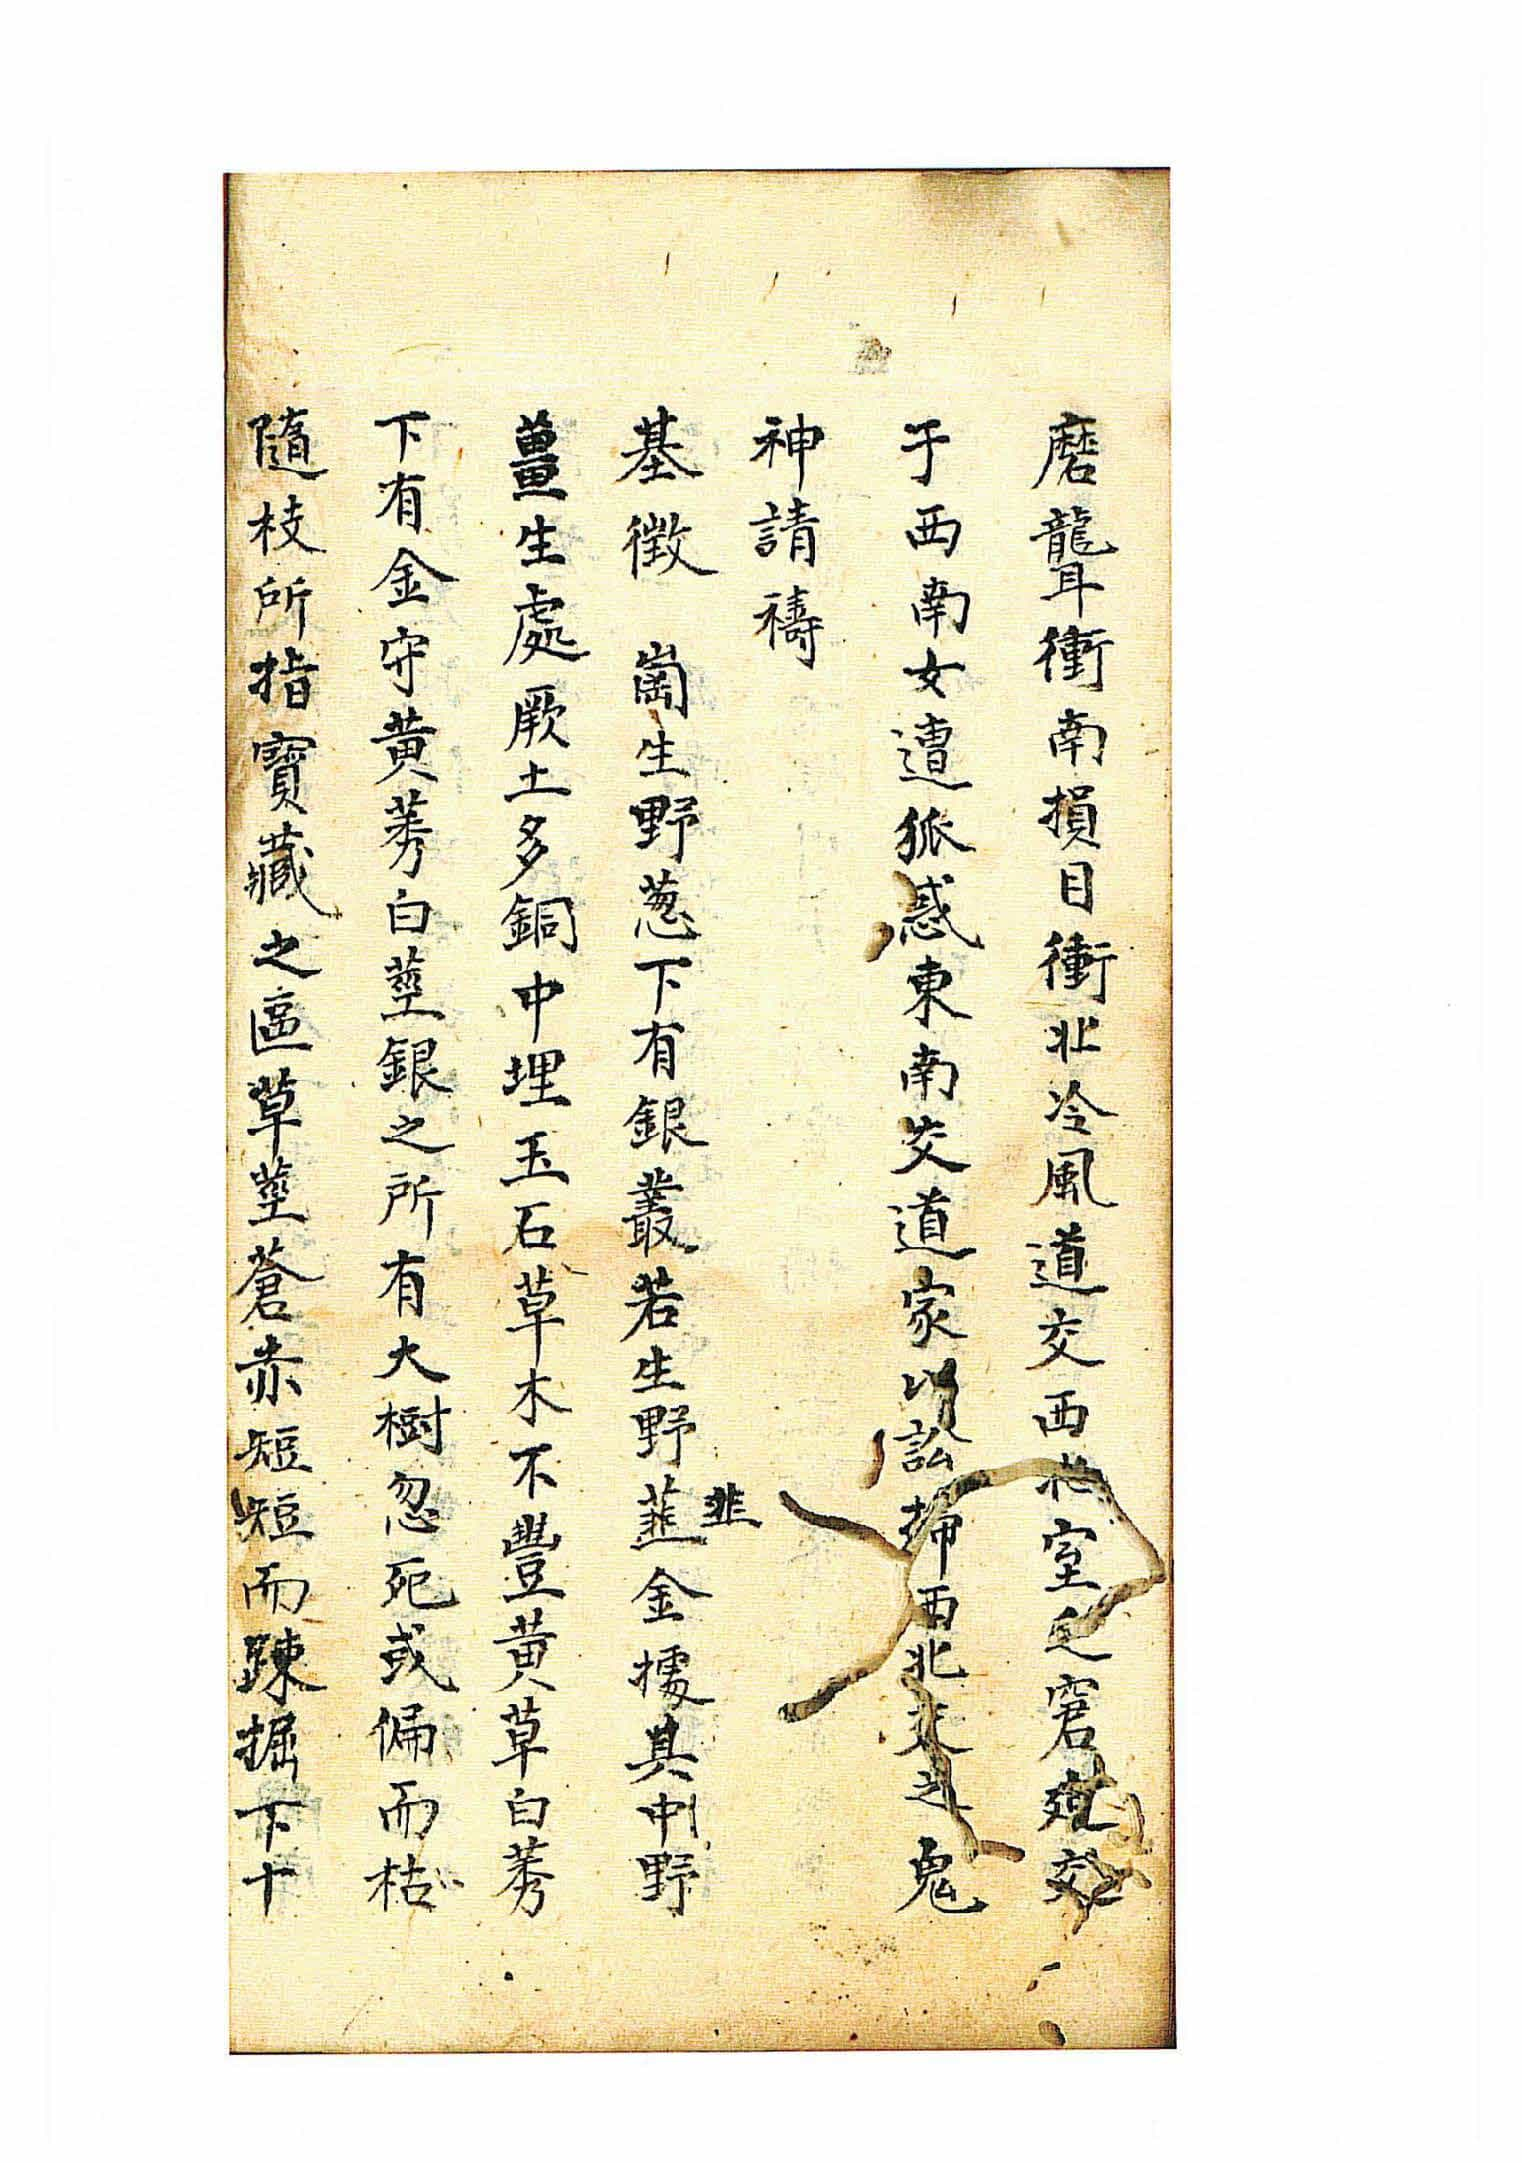 磨聾耳衝南損目衝北冷風道交西北室之窘道交
于西南女遭狐惑東南交道家以訟擾西北交之鬼
神請禱
基徵　崗生野葱下有銀叢若生野薤金據其中野
韭
薑生處厥土多銅中埋玉石草木不豐黄草白莠
下有金守黄莠白莖銀之所有大樹忽死或偏而枯
隨枝所指寶藏之區草莖蒼赤短短而踈掘下十